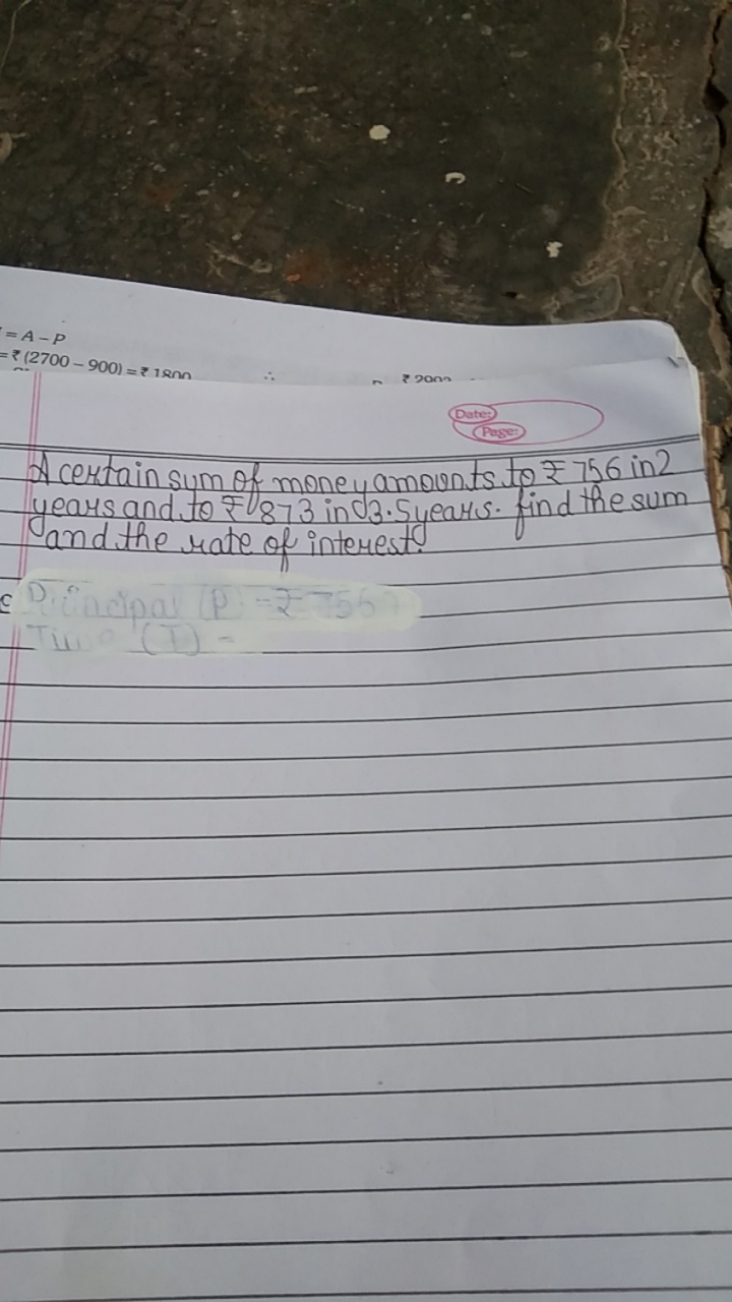 = A – P
= ₹ (2700 – 900) = ₹ 1800
∴
Date:
Page:
A certain sum of money amounts to ₹ 756 in 2
years and to ₹ 873 in 3.5 years. find the sum
and the rate of interest.
Principal (P) = ₹ 756
Time (T) =